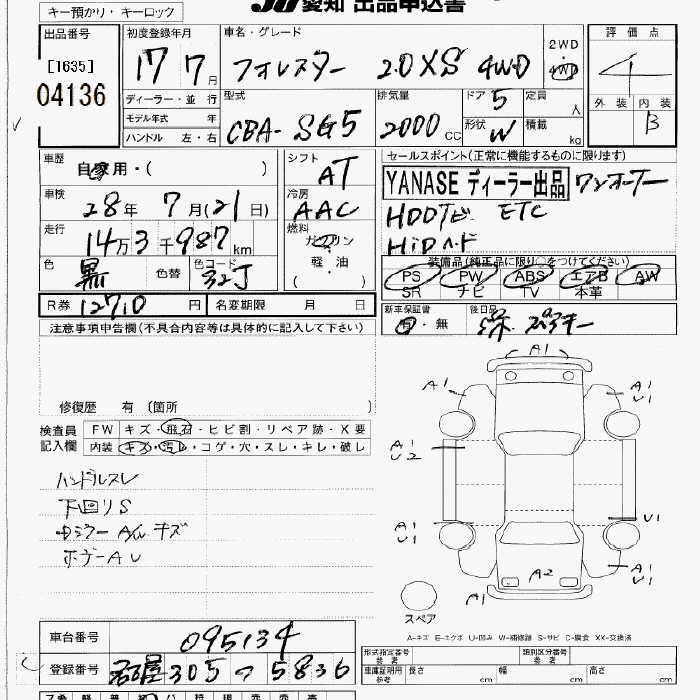 愛知 出品申込書
キー預かり・キーロック
出品番号
[1635]
04136
初度登録年月
17 7月
車名・グレード
フォレスター 2.0XS 4WD
2WD
・
4WD
評価点
4
外装 内装
B
ディーラー・並行
モデル年式 年
ハンドル 左・右
型式
CBA-SG5
排気量
2000 CC
ドア 5
形状 W
定員 人
積載 kg
車歴
自家用・( )
シフト
AT
セールスポイント(正常に機能するものに限ります)
YANASE ディーラー出品 ワンオーナー
HDDナビ ETC
HiDヘッド
車検
28年 7月(21日)
冷房
AAC
走行
14万3千987km
燃料
ガソリン
軽・油
( )
色
黒
色替
色コード
32J
装備品(純正品に限り○をつけてください)
PS PW ABS エアB AW
SR ナビ TV 本革
R券 12710円
名変期限 月 日
新車保証書
有・無
後日品
注意事項申告欄(不具合内容等は具体的に記入して下さい)
修復歴 有 〔箇所 〕
検査員
記入欄
FW キズ・飛石・ヒビ割・リペア跡・X要
内装 キズ・汚レ・コゲ・穴・スレ・キレ・破レ
ハンドルスレ
下回りS
A/W キズ
A1
A1
A1
U1
A1
U2
A1
U1
U1
A2
A1
U1
A1
スペア
A-キズ E-エクボ U-凹み W-補修跡 S-サビ C-腐食 XX-交換済
車台番号
095134
登録番号
名古屋 305 つ 5836
形式指定番号
類別区分番号
車庫証明用
参考
長さ cm
幅 cm
高さ cm